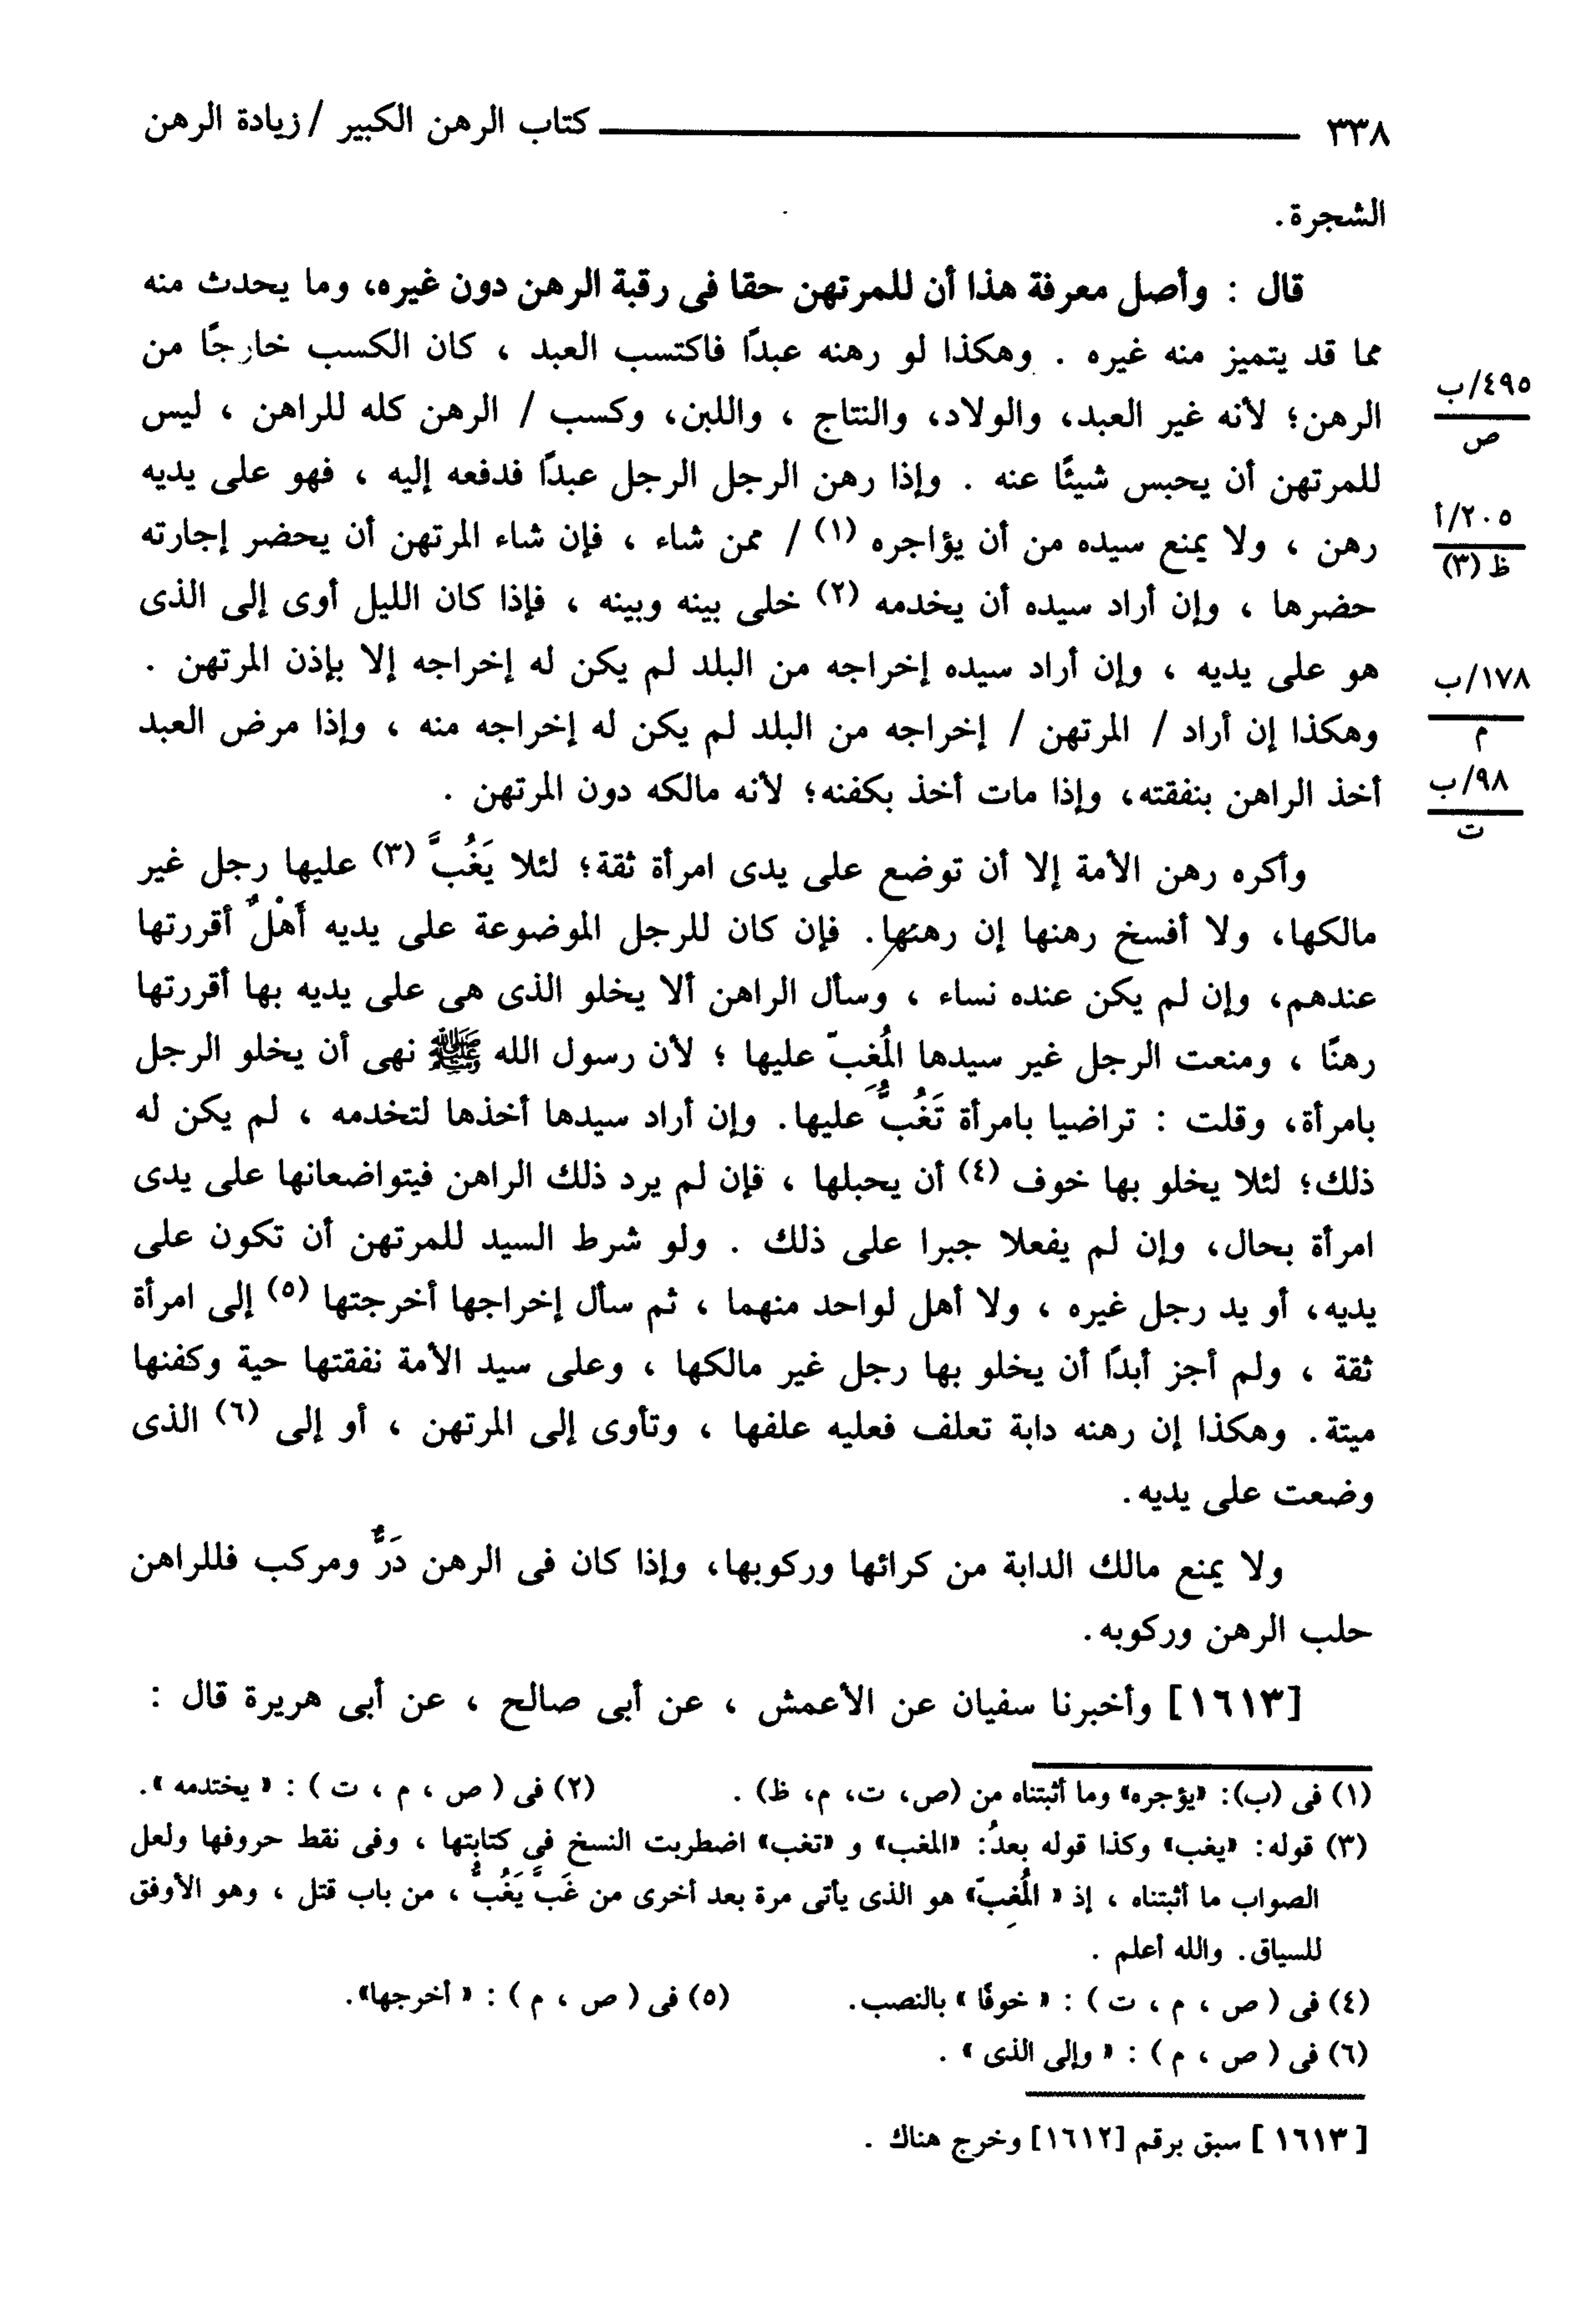 ٣٣٨ ــــــــ كتاب الرهن الكبير / زيادة الرهن
الشجرة.
قال : وأصل معرفة هذا أن للمرتهن حقا فى رقبة الرهن دون غيره، وما يحدث منه
مما قد يتميز منه غيره . وهكذا لو رهنه عبدًا فاكتسب العبد ، كان الكسب خارجًا من
الرهن؛ لأنه غير العبد، والولاد، والنتاج ، واللبن، وكسب / الرهن كله للراهن ، ليس
٤٩٥/ب
ص
للمرتهن أن يحبس شيئًا عنه . وإذا رهن الرجل الرجل عبدًا فدفعه إليه ، فهو على يديه
رهن ، ولا يمنع سيده من أن يؤاجره (١) / ممن شاء ، فإن شاء المرتهن أن يحضر إجارته
٢٠٥/أ
ظ (٣)
حضرها ، وإن أراد سيده أن يخدمه (٢) خلى بينه وبينه ، فإذا كان الليل أوى إلى الذى
هو على يديه ، وإن أراد سيده إخراجه من البلد لم يكن له إخراجه إلا بإذن المرتهن .
١٧٨/ب
م
وهكذا إن أراد / المرتهن / إخراجه من البلد لم يكن له إخراجه منه ، وإذا مرض العبد
٩٨/ب
ت
أخذ الراهن بنفقته، وإذا مات أخذ بكفنه؛ لأنه مالكه دون المرتهن .
وأكره رهن الأمة إلا أن توضع على يدى امرأة ثقة؛ لئلا يَغُبَّ (٣) عليها رجل غير
مالكها، ولا أفسخ رهنها إن رهنها. فإن كان للرجل الموضوعة على يديه أَهْلٌ أقررتها
عندهم، وإن لم يكن عنده نساء ، وسأل الراهن ألا يخلو الذى هى على يديه بها أقررتها
رهنًا ، ومنعت الرجل غير سيدها المُغِبّ عليها ؛ لأن رسول الله ﷺ نهى أن يخلو الرجل
بامرأة، وقلت : تراضيا بامرأة تَغُبُّ عليها. وإن أراد سيدها أخذها لتخدمه ، لم يكن له
ذلك؛ لئلا يخلو بها خوف (٤) أن يحبلها ، فإن لم يرد ذلك الراهن فيتواضعانها على يدى
امرأة بحال، وإن لم يفعلا جبرا على ذلك . ولو شرط السيد للمرتهن أن تكون على
يديه، أو يد رجل غيره ، ولا أهل لواحد منهما ، ثم سأل إخراجها أخرجتها (٥) إلى امرأة
ثقة ، ولم أجز أبدًا أن يخلو بها رجل غير مالكها ، وعلى سيد الأمة نفقتها حية وكفنها
ميتة. وهكذا إن رهنه دابة تعلف فعليه علفها ، وتأوى إلى المرتهن ، أو إلى (٦) الذى
وضعت على يديه.
ولا يمنع مالك الدابة من كرائها وركوبها، وإذا كان فى الرهن دَرٌّ ومركب فللراهن
حلب الرهن وركوبه.
[١٦١٣] وأخبرنا سفيان عن الأعمش ، عن أبى صالح ، عن أبى هريرة قال :
(١) فى (ب): «يؤجره» وما أثبتناه من (ص، ت، م، ظ) . (٢) فى ( ص ، م ، ت ) : « يختدمه ».
(٣) قوله: «يغب» وكذا قوله بعدُ: «المغب» و «تغب» اضطربت النسخ فى كتابتها ، وفى نقط حروفها ولعل
الصواب ما أثبتناه ، إذ « المُغِبّ» هو الذى يأتى مرة بعد أخرى من غَبَّ يَغُبُّ ، من باب قتل ، وهو الأوفق
للسياق. والله أعلم .
(٤) فى ( ص ، م ، ت ) : « خوفًا » بالنصب. (٥) فى ( ص ، م ) : « أخرجها».
(٦) فى ( ص ، م ) : « وإلى الذى » .
[ ١٦١٣ ] سبق برقم [١٦١٢] وخرج هناك .